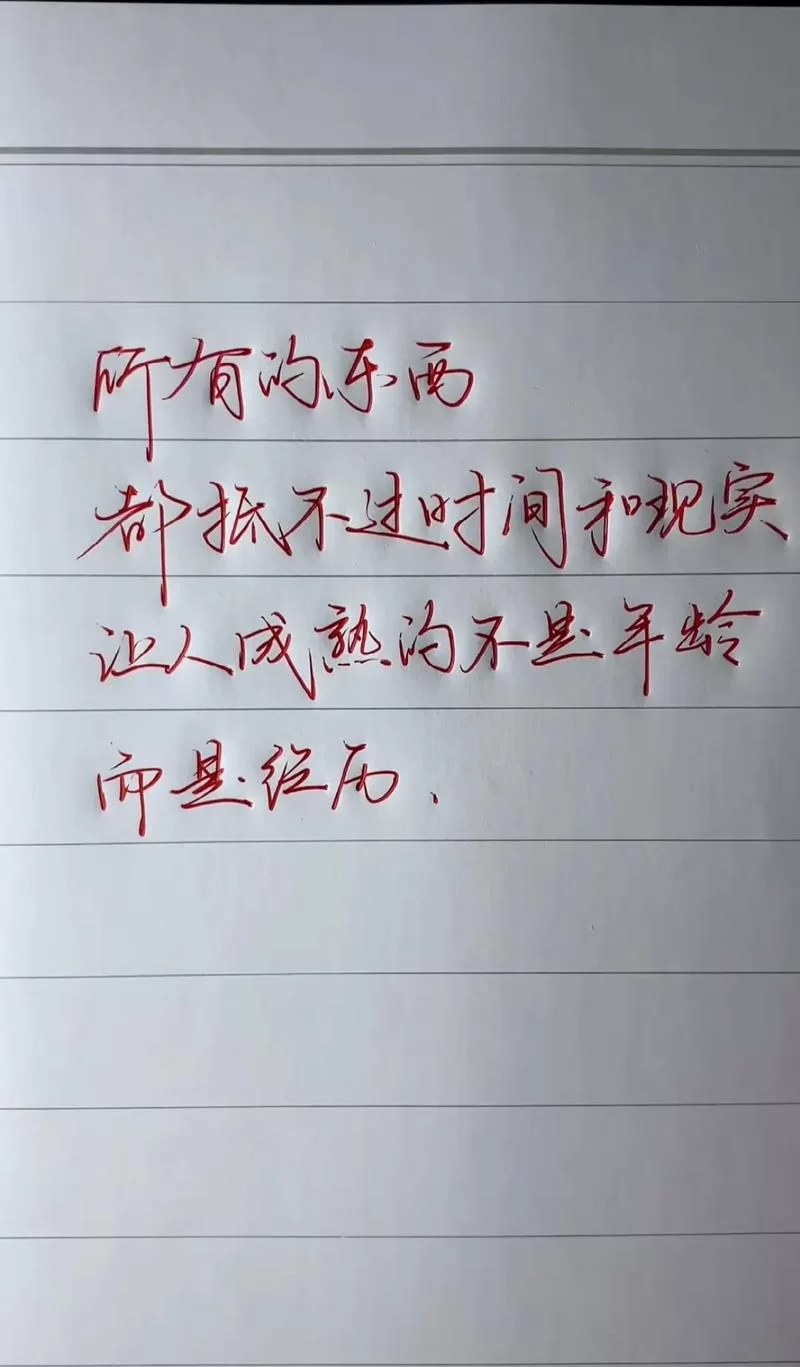 所有的东西
都抵不过时间和现实
让人成熟的不是年龄
而是经历.